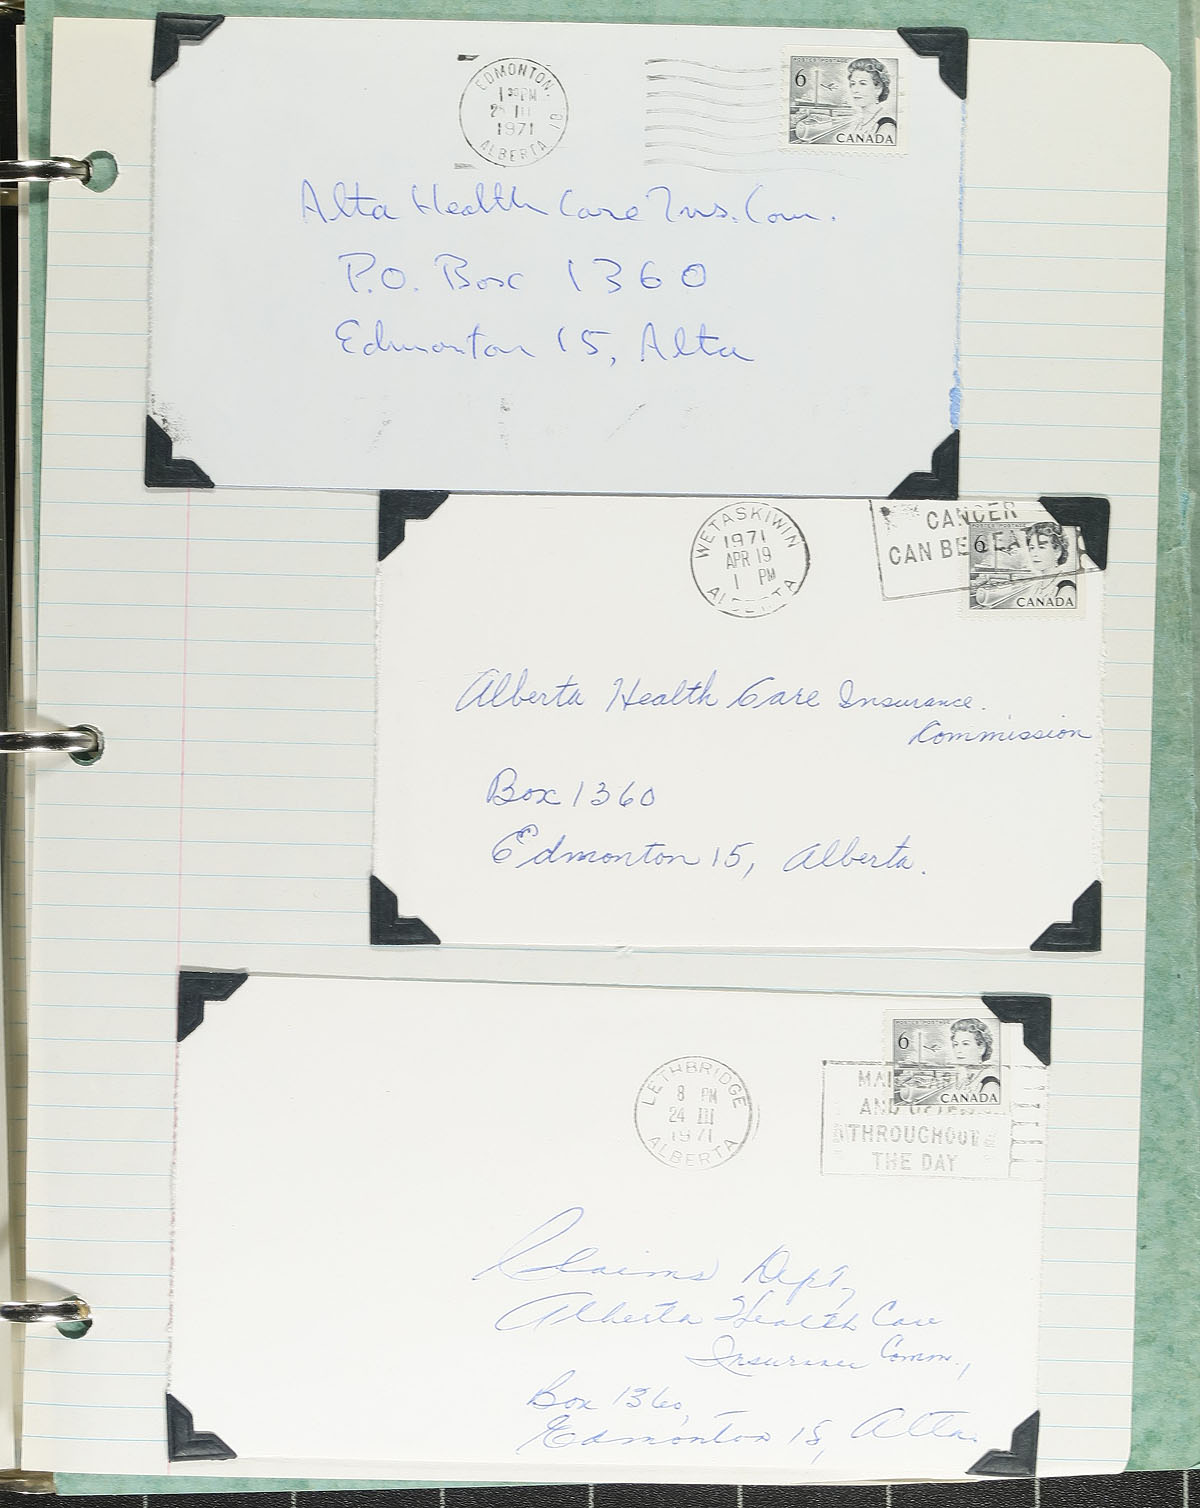 EDMONTON.
1 30 PM
III
1971
ALBERTA
POSTES POSTAGE
6
CANADA
Alta Health Care Ins. Com.
P.O. Box 1360
Edmonton 15, Alta
WETASKIWIN
1971
APR 19
1 PM
CANCER
CAN BE
POSTES POSTAGE
6
CANADA
Alberta Health Care Insurance.
Commission
Box 1360
Edmonton 15, Alberta.
POSTES POSTAGE
6
CANADA
LETHBRIDGE
8 PM
24 III
1971
ALBERTA
AND
THROUGHOUT
THE DAY
Claims Dept,
Alberta Health Care
Insurance Comm.,
Box 1360,
Edmonton 15, Alta.